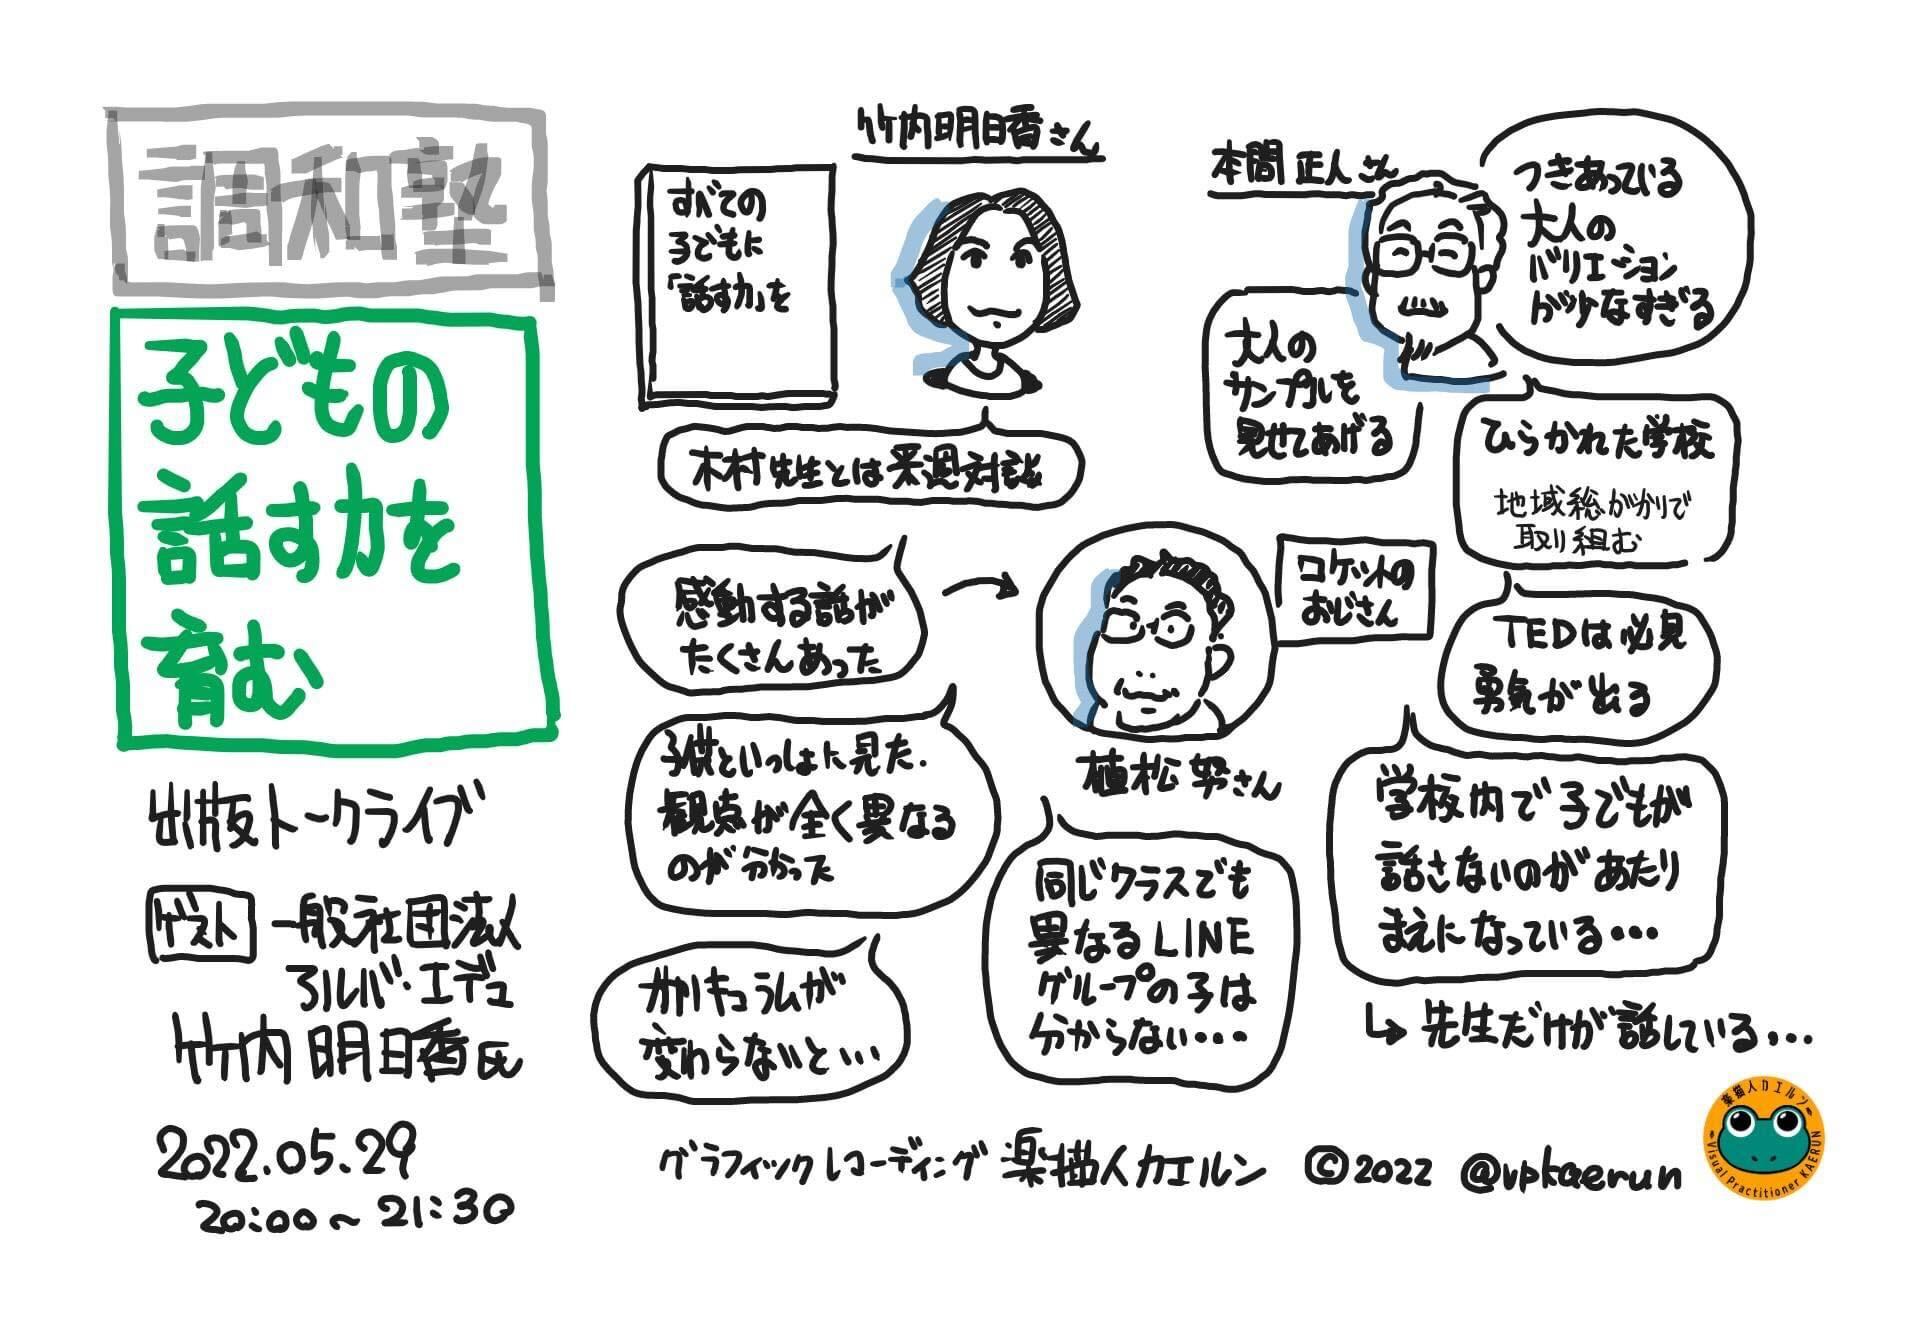 調和塾
子どもの
話す力を
育む
出版トークライブ
ゲスト 一般社団法人
アルバ・エデュ
竹内明日香氏
2022.05.29
20:00~21:30
竹内明日香さん
すべての
子どもに
「話す力」を
木村先生とは来週対談
感動する話が
たくさんあった
子供といっしょに見た.
観点が全く異なる
のが分かった
カリキュラムが
変わらないと…
本間正人さん
つきあっている
大人の
バリエーション
が少なすぎる
大人の
サンプルを
見せてあげる
ひらかれた学校
地域総がかりで
取り組む
ロケットの
おじさん
植松努さん
TEDは必見
勇気が出る
同じクラスでも
異なるLINE
グループの子は
分からない…
学校内で子どもが
話さないのがあたり
まえになっている…
↳先生だけが話している…
グラフィックレコーディング 楽描人カエルン ©2022 @vpkaerun
楽描人カエルン
Visual Practitioner KAERUN